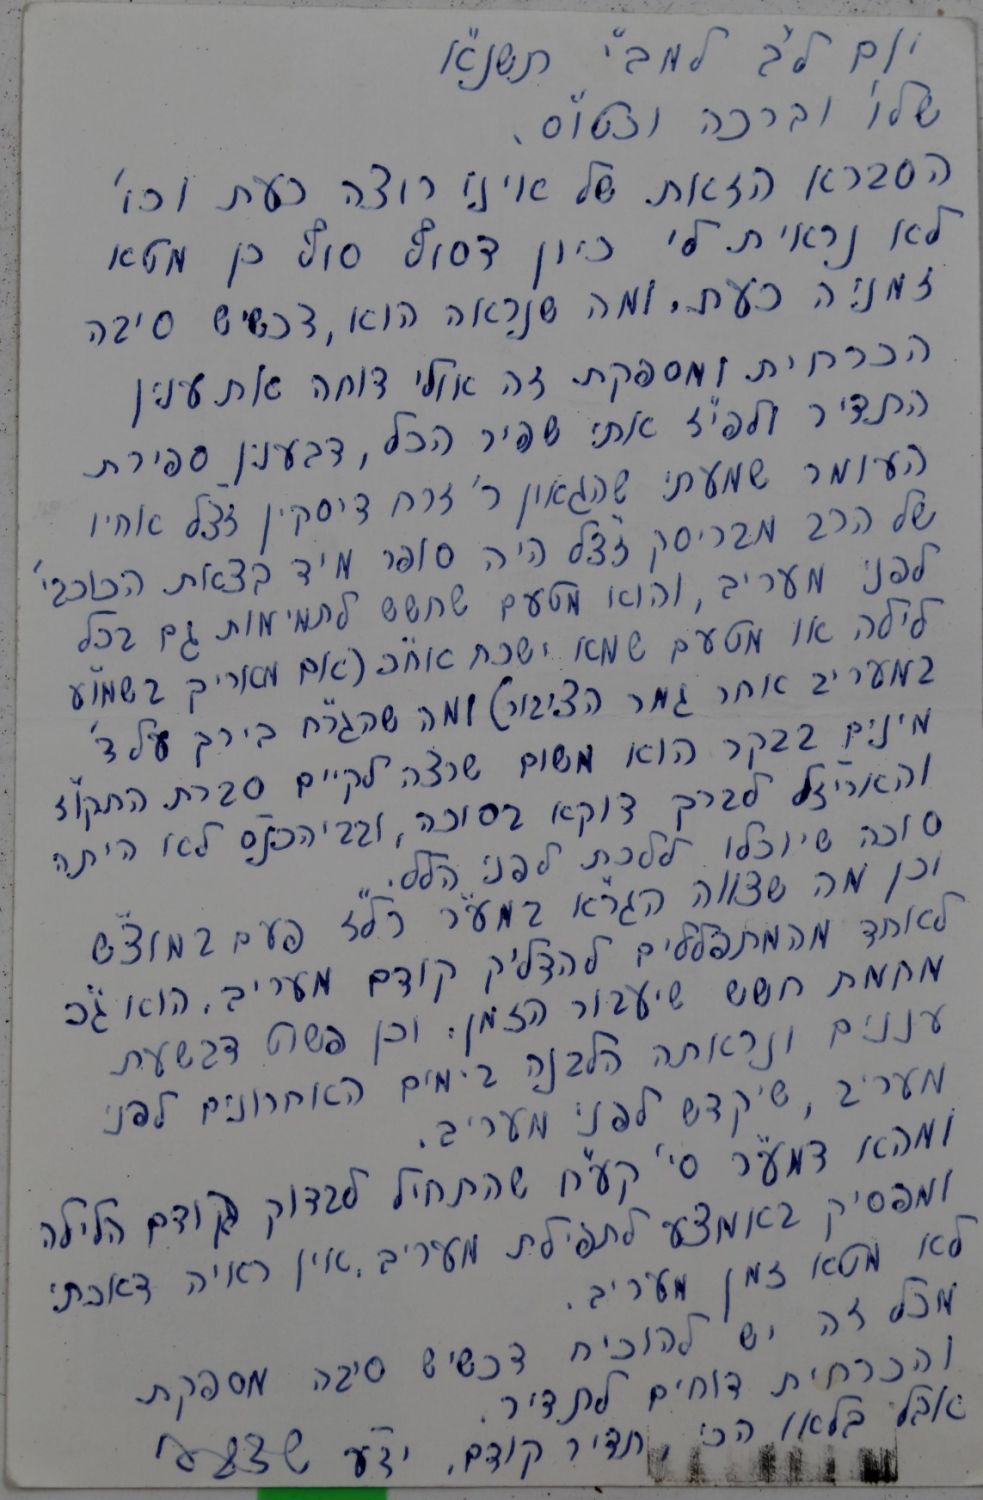 יום ל"ג למב"י תשנ"א
שלו' וברכה וכטו"ס.
הסברא הזאת של אינו רוצה כעת וכו'
לא נראית לי כיון דסוף סוף כן מטא
זמניה כעת. ומה שנראה הוא, דכשיש סיבה
הכרחית ומספקת זה אולי דוחה את ענין
התדיר ולפי"ז אתי שפיר הכל, דבענין ספירת
העומר שמעתי שהגאון ר' זרח דיסקין זצ"ל אחיו
של הרב מבריסק זצ"ל היה סופר מיד בצאת הכוכבי'
לפני מעריב, והוא מטעם שחשש לתמימות גם בכל
לילה או מטעם שמא ישכח אח"כ (אם מאריך בשמו"ע
במעריב אחר גמר הציבור) ומה שהגר"ח בירך על ד'
מינים בבקר הוא משום שרצה לקיים סברת התקו"ז
והאריז"ל לברך דוקא בסוכה, ובביהכנ"ס לא היתה
סוכה שיוכלו ללכת לפני הלל.
וכן מה שצווה הגר"א במע"ר רל"ז פעם במוצ"ש
לאחד מהמתפללים להדליק קודם מעריב. הוא ג"כ
מחמת חשש שיעבור הזמן. וכן פשוט דבשעת
עננים ונראתה הלבנה בימים האחרונים לפני
מעריב, שיקדש לפני מעריב.
ומהא דמע"ר סי' קע"ח שהתחיל לבדוק קודם הלילה
ומפסיק באמצע לתפילת מעריב. אין ראיה דאכתי
לא מטא זמן מעריב.
מכל זה יש להוכיח דכשיש סיבה מספקת
והכרחית דוחים לתדיר.
אבל בלאו הכי, תדיר קודם.